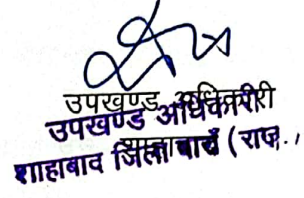 उपखण्ड अधिकारी
उपखण्ड अधिकारी
शाहाबाद जिला बारां (राज.,